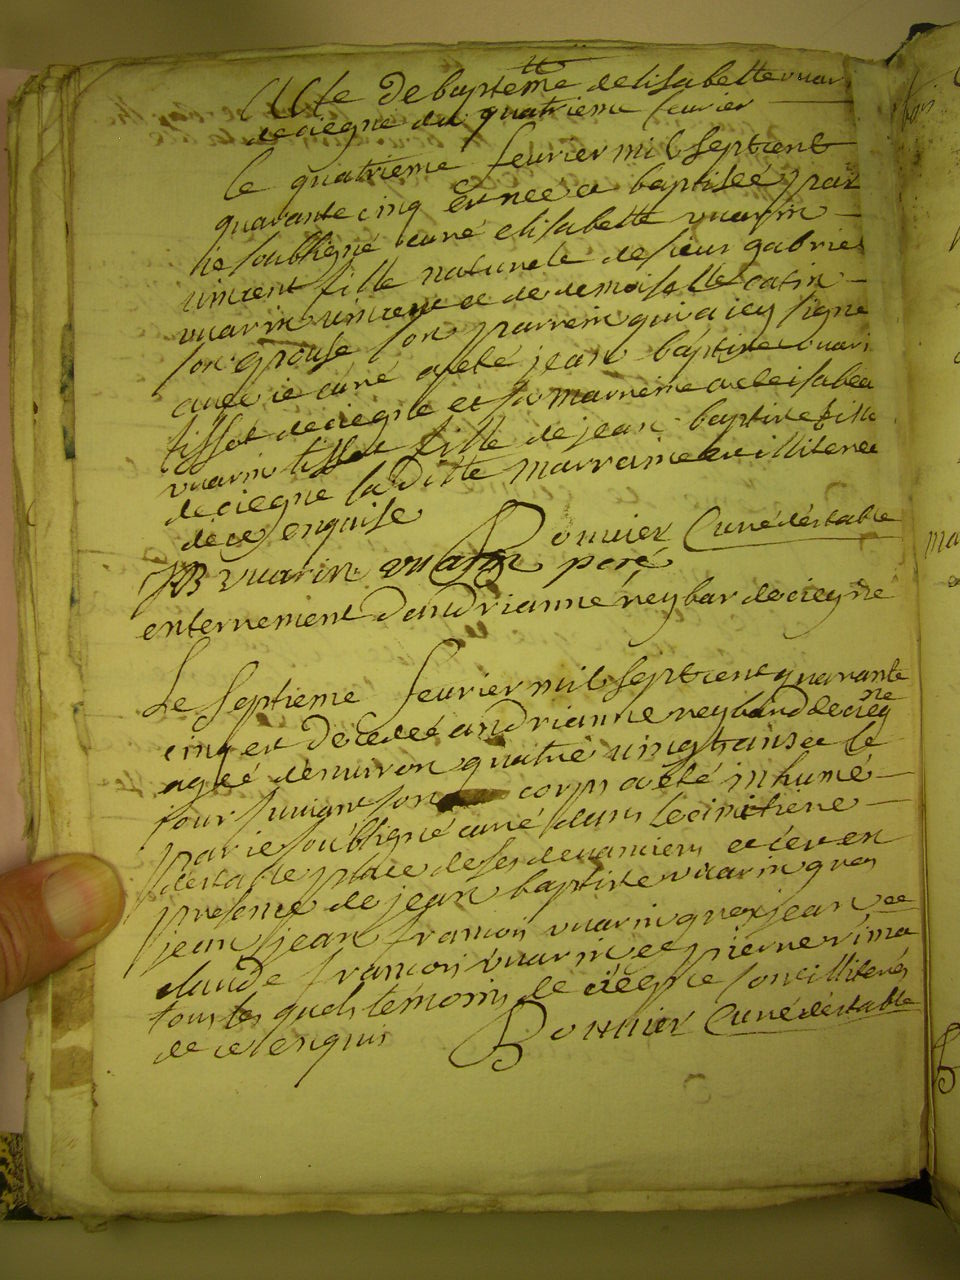 Acte de baptême delisabelle vuar
de ciegne du quatrieme feurier
le quatrieme feurier mil septcent
quarante cinq est nee et baptiseé par
ie soubsigné curé elisabette vuarin
uincent fille naturele de sieur gabriel
vuarin uincent et de demoiselle catin
son epouse son parrein qui a icy signe
auec ie curé a eté jean baptiste vuari
tissot de ciegne et sa marreine a ete isabea
vuarin tissot fille de jean baptiste tisso
de ciegne la ditte marraine est illiteree
de ce enquise
Bonnier Curé déstable
JB vuarin vuarin peré
enterrement dandrianne neybar de ciegne
Le septieme feurier mil septcent quarante
cinq est decedeé andrianne neyband de cieg
ne
ageé denuiron quatre uingt ans et le
jour suiuant son corps a eté inhumé
par ie soubsigné curé dans le cimitiere
destable place de ses deuanciers et c'est en
presence de jean baptiste vuarin gros
jean jean francois vuarin grosjean et
claude francois vuarin et pierre rima
tous les quels témoins de ciégne sont illiterés
de ce enquis
Bonnier Curé déstable